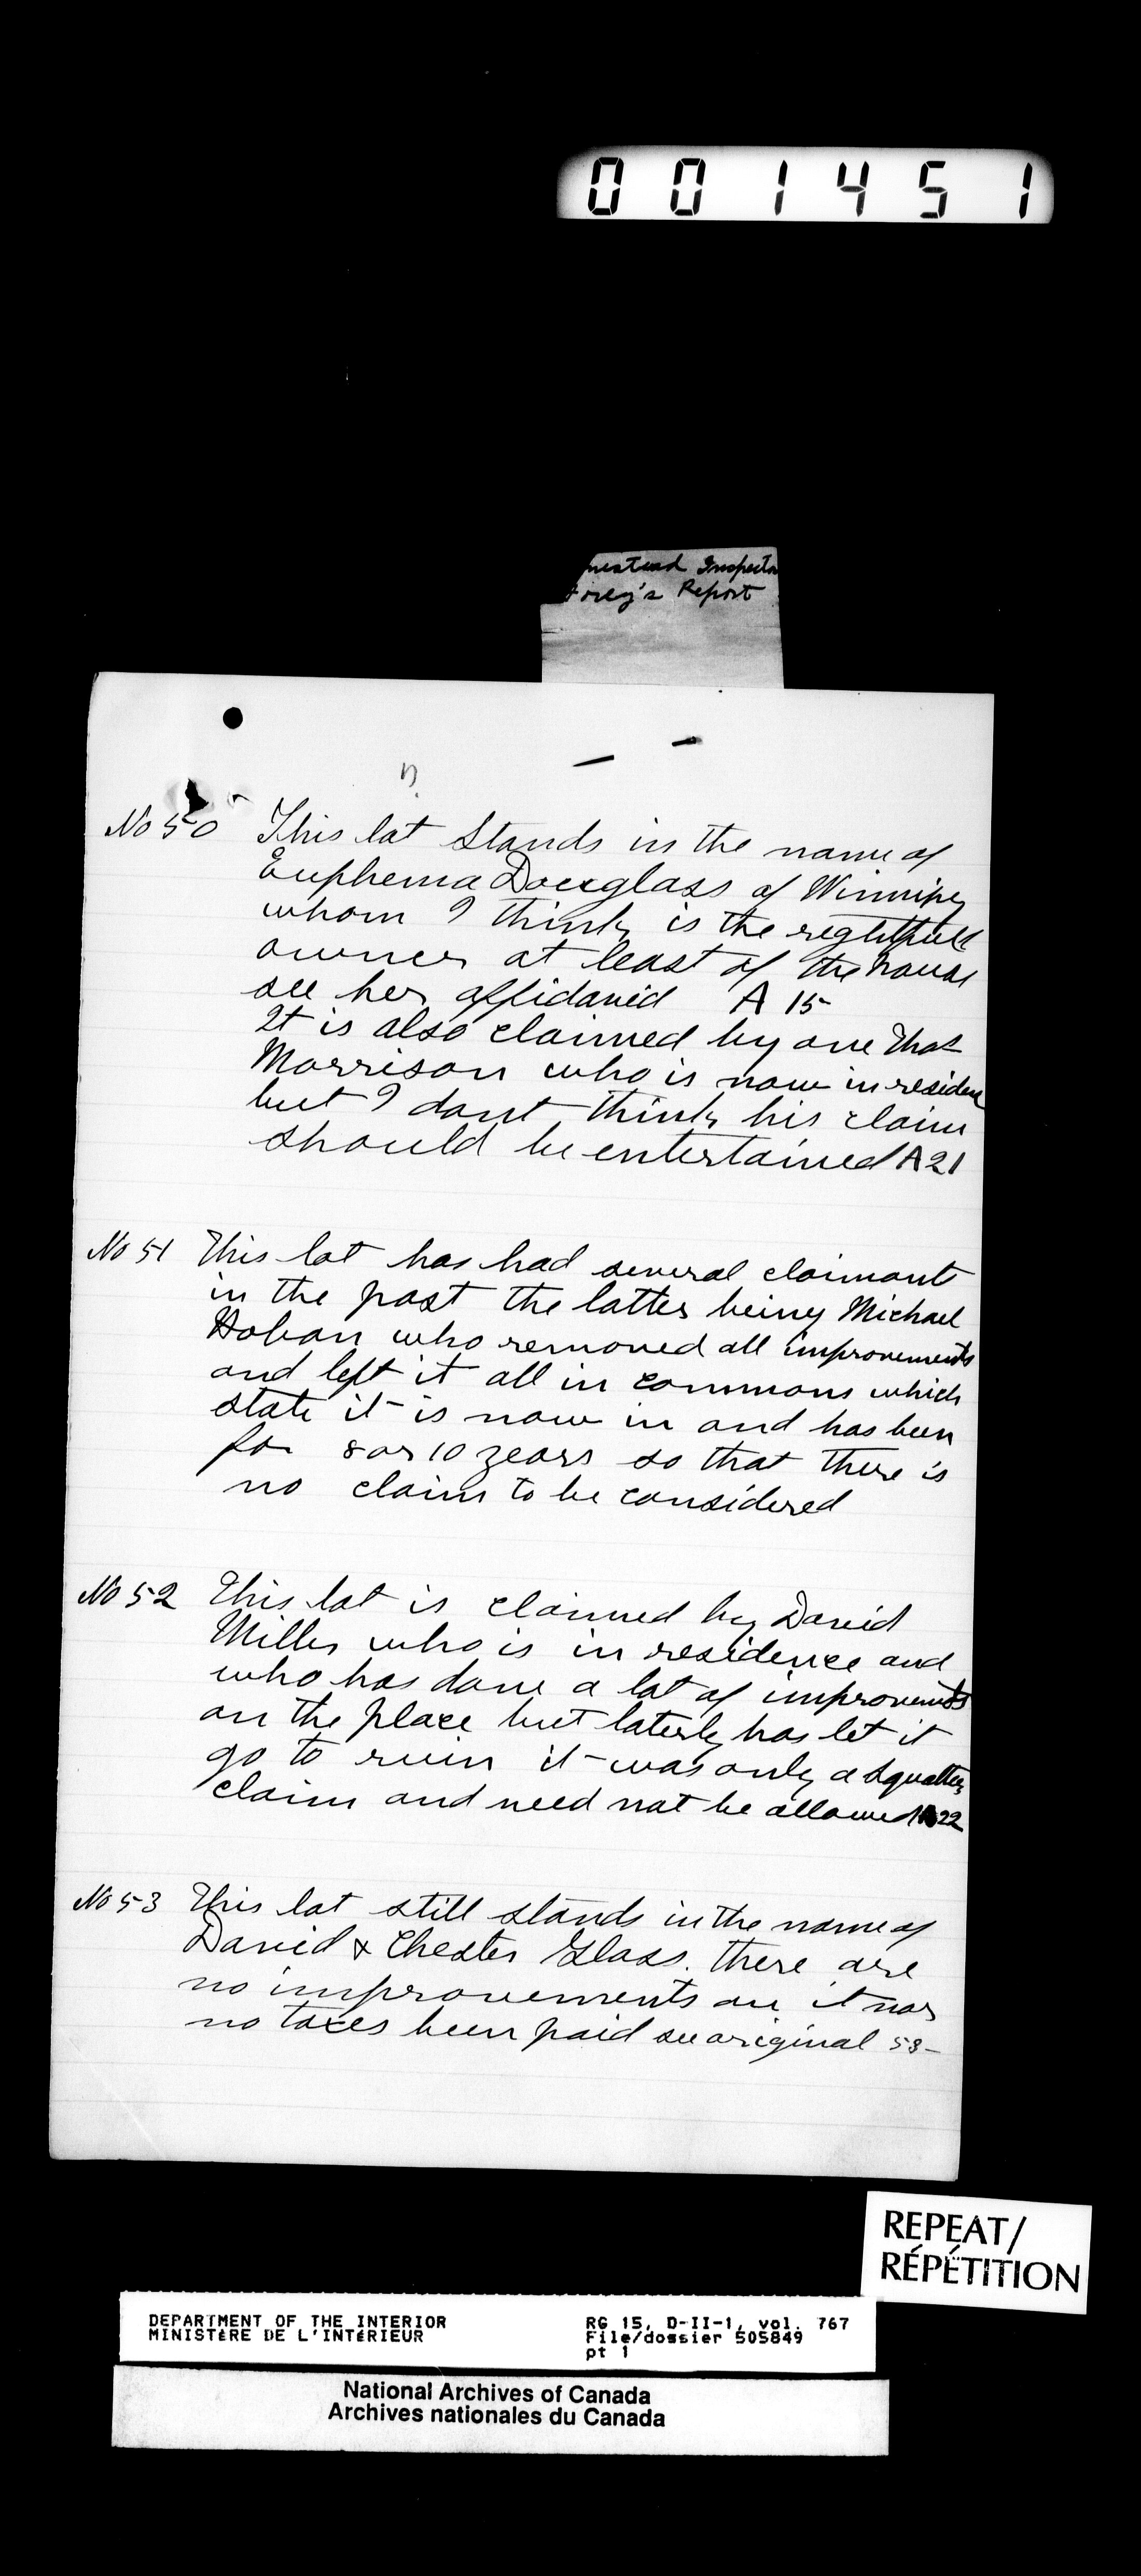 001451
mestead Inspector
orey's Report
No 50 This lot stands in the name of
Euphema Douglass of Winnipeg
whom I think is the rightfull
owner at least of the house
see her affidavid A 15
It is also claimed by one Thos
Morrison who is now in residence
but I dont think his claim
should be entertained A21
No 51 This lot has had several claimants
in the past the latter being Michael
Hoban who removed all improvements
and left it all in commons which
state it is now in and has been
for 8 or 10 years so that there is
no claim to be considered
No 52 This lot is claimed by David
Miller who is in residence and
who has done a lot of improvements
on the place but laterly has let it
go to ruin it was only a squatters
claim and need not be allowed A22
No 53 This lot still stands in the name of
David & Chester Glass. there are
no improvements on it nor
no taxes been paid see original 53-
REPEAT/
RÉPÉTITION
DEPARTMENT OF THE INTERIOR RG 15, D-II-1, vol. 767
MINISTÈRE DE L'INTÉRIEUR File/dossier 505849
pt 1
National Archives of Canada
Archives nationales du Canada